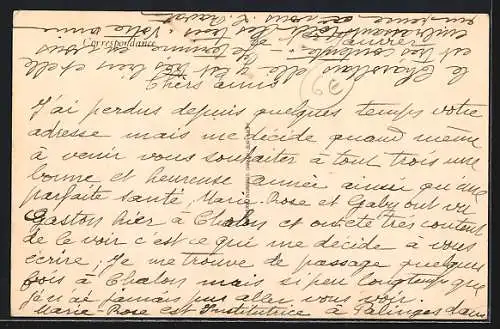 Correspondance
Chers amis
J'ai perdus depuis quelques temps votre
adresse mais me décide quand même
à venir vous souhaiter à tout trois une
bonne et heureuse année ainsi qu'une
parfaite santé, Marie-Rose et Gaby ont vu
Gaston hier à Chalon et ont été très content
de le voir c'est ce qui me décide à vous
écrire, Je me trouve de passage quelques
fois à Chalon mais si peu longtemps que
j'en ai jamais pus aller vous voir.
Marie-Rose est Institutrice à Palinges dans
le Charollais elle y est très bien et elle
est très contente. Je termine en vous
embrassant les trois. Votre amie